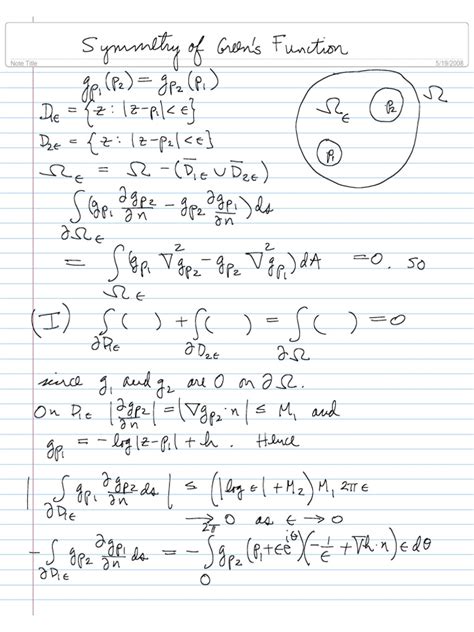 Symmetry of Green's Function
Note Title
5/19/2008
g_{p_1}(p_2) = g_{p_2}(p_1)
D_{1ε} = {z : |z-p_1| < ε}
D_{2ε} = {z : |z-p_2| < ε}
Ω_ε
p_2
Ω
p_1
Ω_ε = Ω - (D̅_{1ε} ∪ D̅_{2ε})
∫_{∂Ω_ε} (g_{p_1} ∂g_{p_2}/∂n - g_{p_2} ∂g_{p_1}/∂n) ds
= ∫_{Ω_ε} (g_{p_1} ∇² g_{p_2} - g_{p_2} ∇² g_{p_1}) dA = 0. so
(I) ∫_{∂D_{1ε}} ( ) + ∫_{∂D_{2ε}} ( ) = ∫_{∂Ω} ( ) = 0
since g_1 and g_2 are 0 on ∂Ω.
On D_{1ε} |∂g_{p_2}/∂n| = |∇g_{p_2} · n| ≤ M_1 and
g_{p_1} = -log|z-p_1| + h. Hence
|∫_{∂D_{1ε}} g_{p_1} ∂g_{p_2}/∂n ds| ≤ (|log ε| + M_2) M_1 2πε
→ 0 as ε → 0
-∫_{∂D_{1ε}} g_{p_2} ∂g_{p_1}/∂n ds = -∫_0^{2π} g_{p_2}(p_1 + εe^{iθ})(-1/ε + ∇h·n) ε dθ